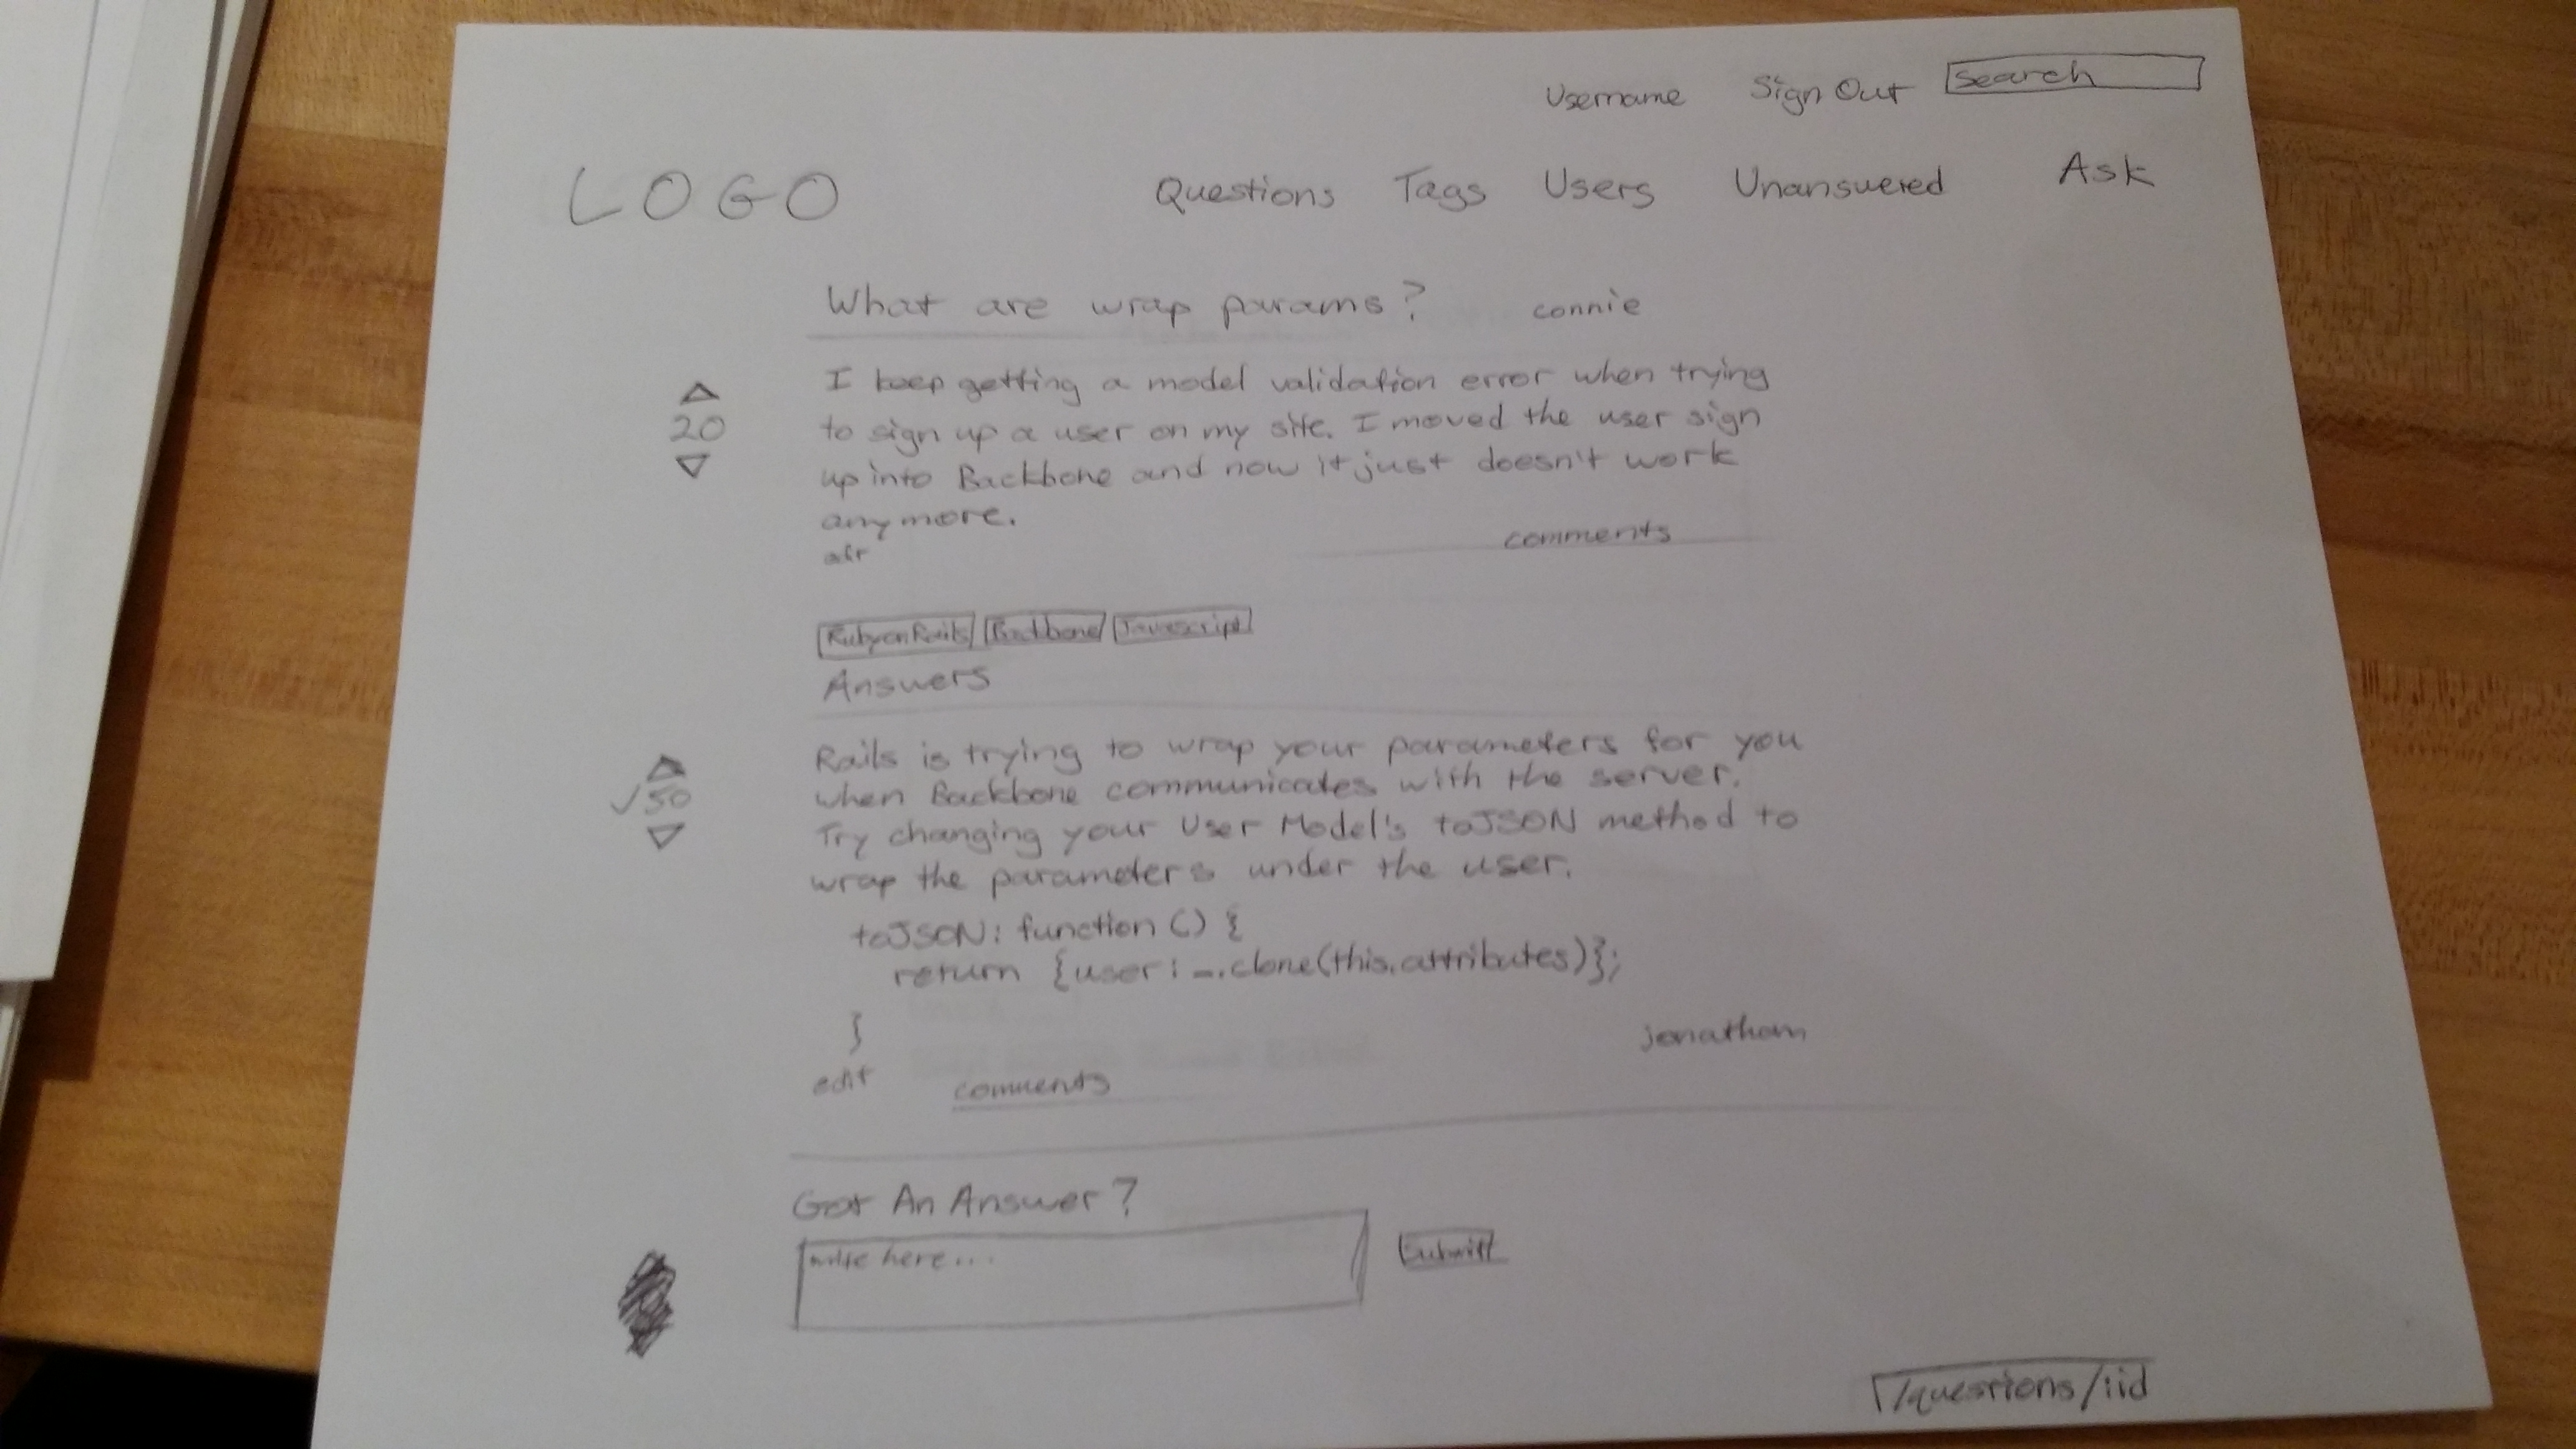 Username Sign Out Search
LOGO Questions Tags Users Unanswered Ask
What are wrap params? connie
I keep getting a model validation error when trying
20
to sign up a user on my site. I moved the user sign
up into Backbone and now it just doesn't work
anymore.
comments
Ruby on Rails Backbone Javascript
Answers
Rails is trying to wrap your parameters for you
✓50
when Backbone communicates with the server.
Try changing your User Model's toJSON method to
wrap the parameters under the user.
toJSON: function () {
return {user: _.clone(this.attributes)};
}
jonathan
edit comments
Got An Answer?
write here...
Submit
/questions/:id